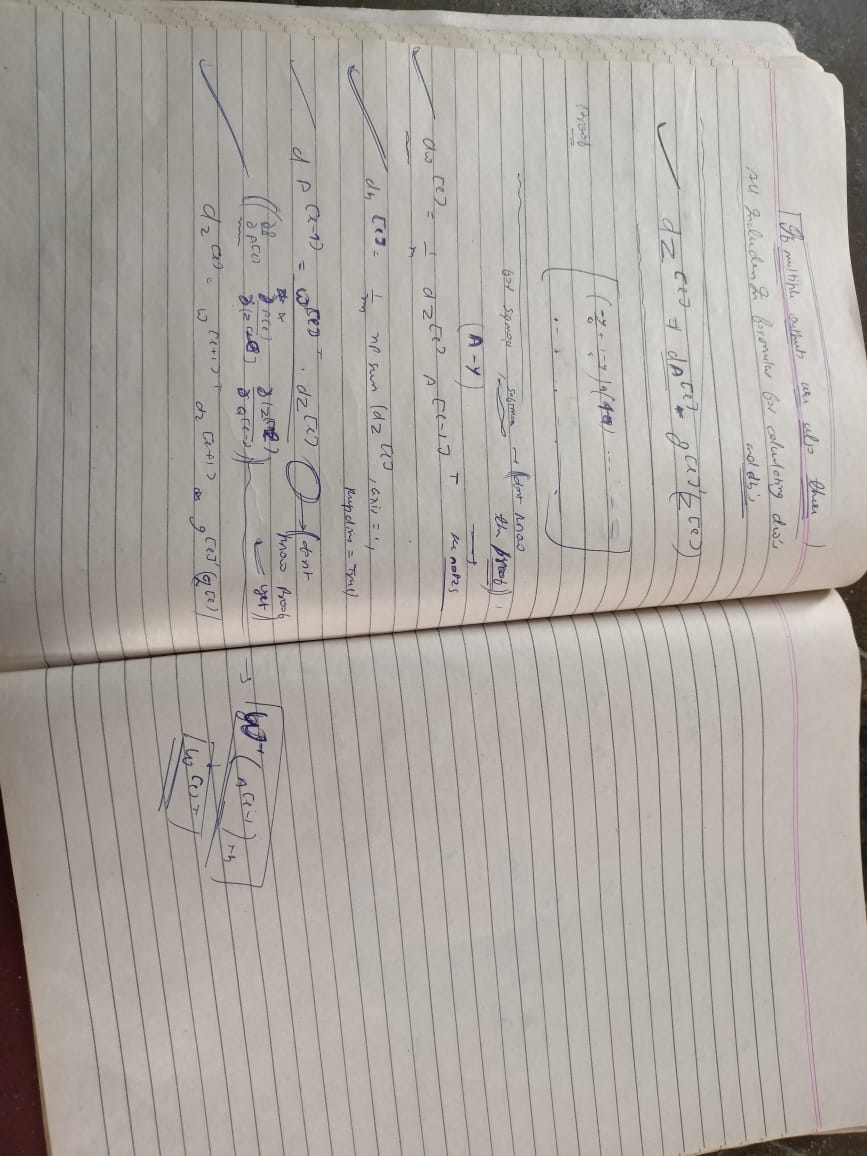 If multiple outputs are also there
All Included In formulas for calculating dw's
and db's
dZ^[l] = dA^[l] * g^[l]'(Z^[l])
Proof
(-y/a + 1-y/
... ... - - =
for sigmoid, softmax → (dont know
the proof)
(A - Y)
see notes
dw^[l] = 1/m dZ^[l] A^[l-1]T
db^[l] = 1/m np sum (dZ^[l], axis = 1,
keepdims = True)
dA^[l-1] = w^[l]T . dZ^[l] → (dont
know Proof
yet)
∂A^[l]
dz^[l] = w^[l+1]T dz^[l+1] * g^[l]'(z^[l])
→ W (A^[l-1]) + b
w^[l]T